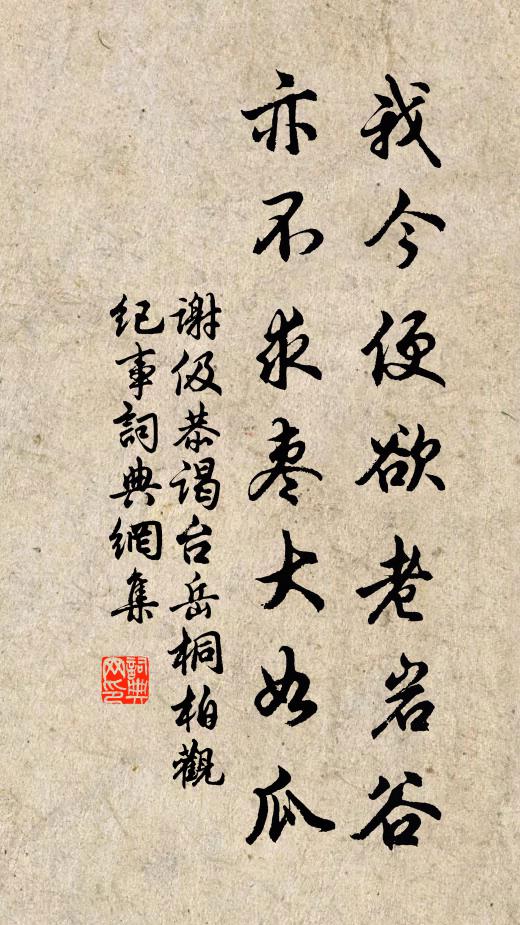 我今便欲老岩谷
亦不求枣大如瓜
谢伋恭谒台岳桐柏觀
纪事詞典網集
詞典网印